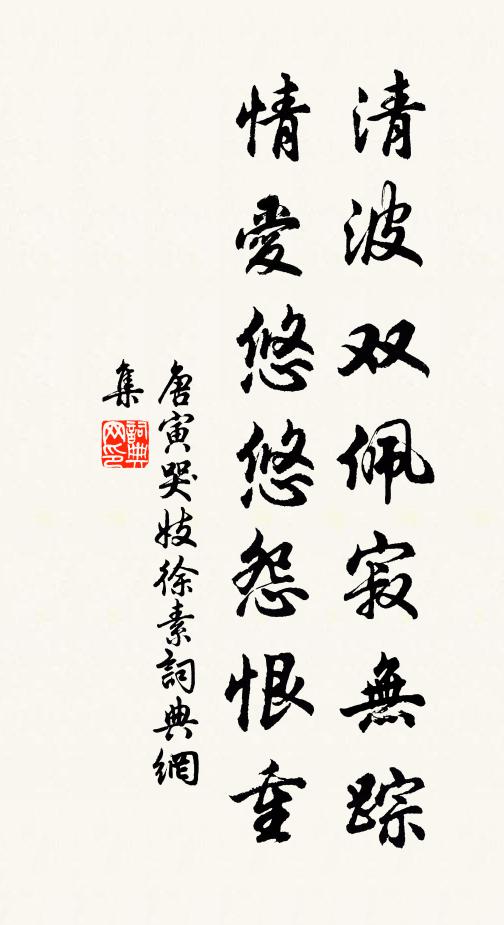 清波双佩寂無踪
情愛悠悠怨恨重
唐寅哭妓徐素詞典網
集
詞典网印